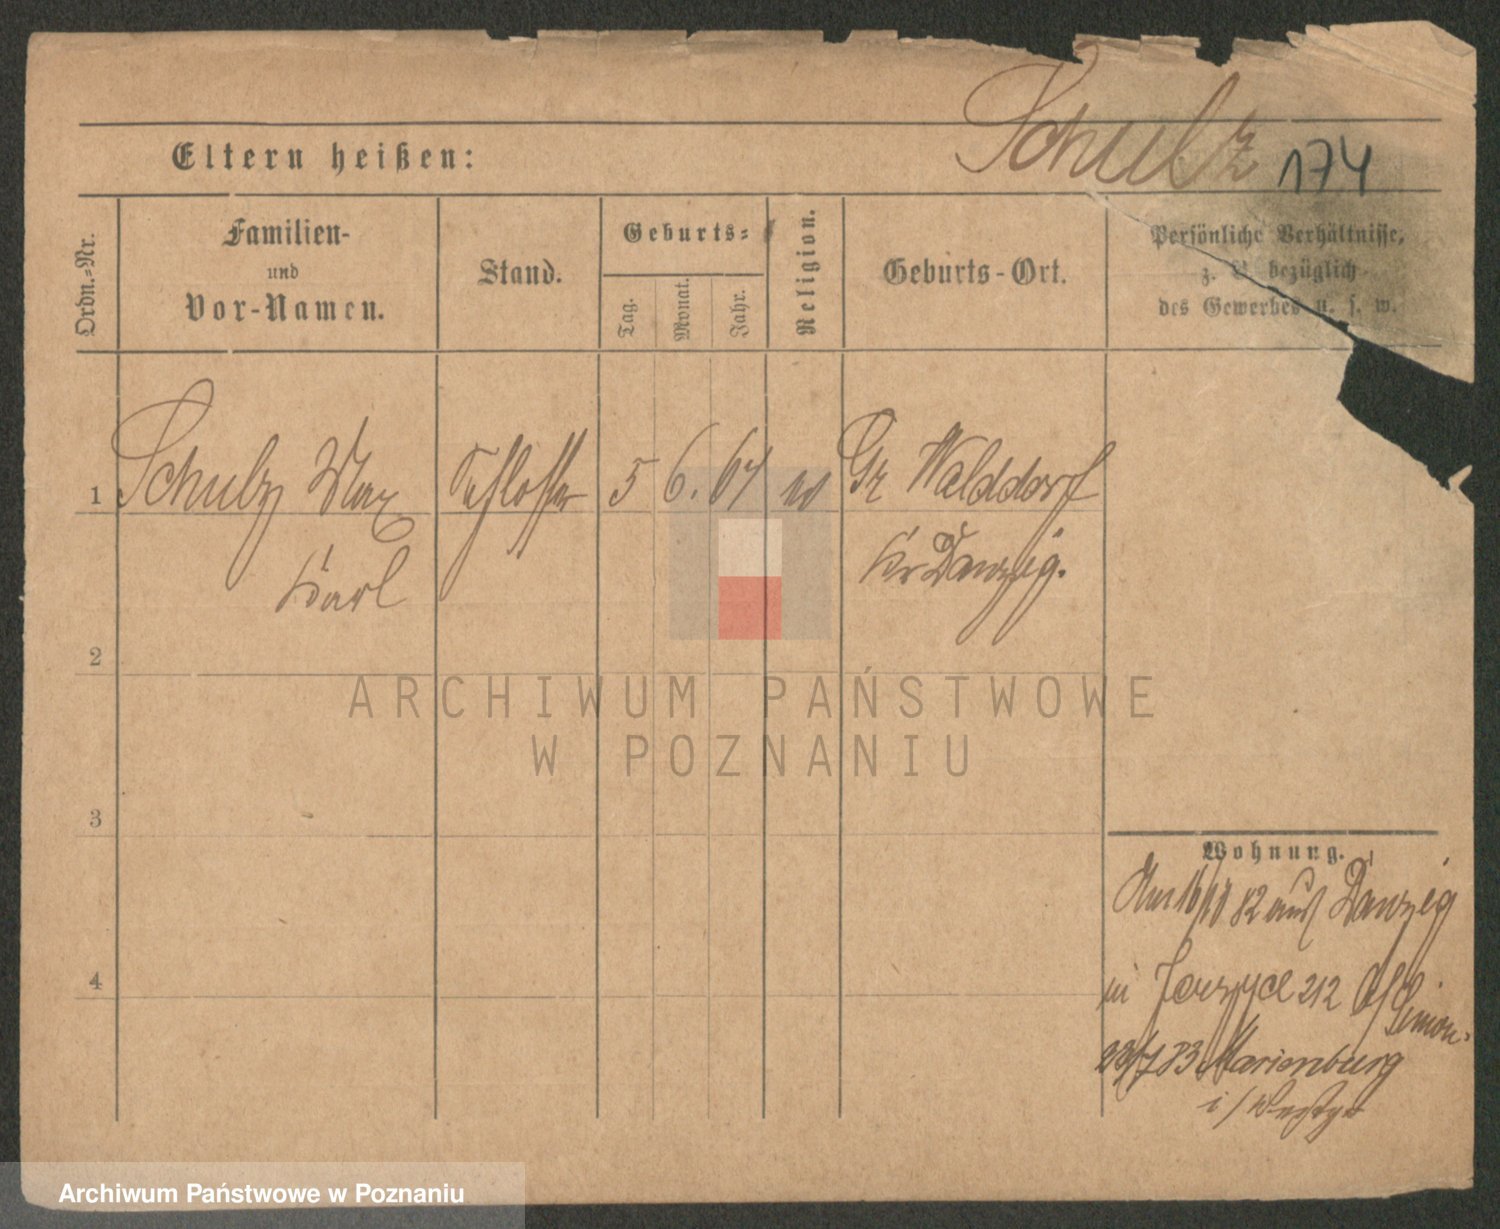 Schulz 174
Eltern heißen:
Ordn.-Nr.
Familien-
und
Vor-Namen.
Stand.
Geburts-
Tag.
Monat.
Jahr.
Religion.
Geburts-Ort.
Persönliche Verhältnisse,
z. B. bezüglich
des Gewerbes u. s. w.
1 Schulz Max Schlosser 5 6. 64 Gr Walddorf
Karl Kr Danzig.
2
3
4
ARCHIWUM PAŃSTWOWE
W POZNANIU
Wohnung.
Am 16/10 82 aus Danzig
in Jerzyce 212 Simon
22/7 83 Marienburg
i/
Archiwum Państwowe w Poznaniu